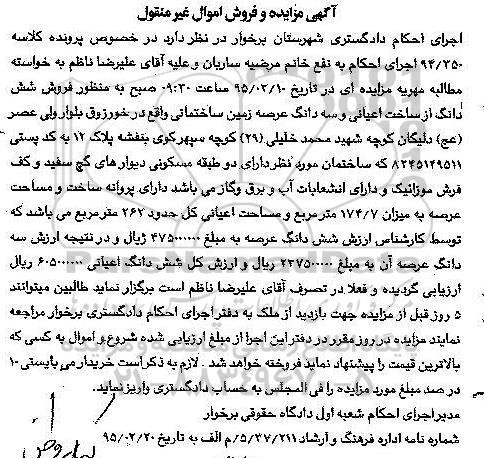 آگهی مزایده و فروش اموال غیر منقول
اجرای احکام دادگستری شهرستان برخوار در نظر دارد در خصوص پرونده کلاسه
۹۴/۳۵۰ اجرای احکام به نفع خانم مرضیه ساریان و علیه آقای علیرضا ناظم به خواسته
مطالبه مهریه مزایده ای در تاریخ ۹۵/۰۳/۱۰ ساعت ۰۹:۳۰ صبح به منظور فروش شش
دانگ از ساخت اعیانی و سه دانگ عرصه زمین ساختمانی واقع در خورزوق بلوار ولی عصر
(عج) دلیگان کوچه شهید محمد خلیلی (۲۹) کوچه سپهر کوی بنفشه پلاک ۱۲ به کد پستی
۸۳۴۵۱۴۹۵۱۱ که ساختمان مورد نظر دارای دو طبقه مسکونی دیوار های گچ سفید و کف
فرش موزائیک و دارای انشعابات آب و برق و گاز می باشد دارای پروانه ساخت و مساحت
عرصه به میزان ۱۷۴/۷ متر مربع و مساحت اعیانی کل حدود ۲۶۲ متر مربع می باشد که
توسط کارشناس ارزش شش دانگ عرصه به مبلغ ۴۷۵۰۰۰۰۰۰ ریال و در نتیجه ارزش سه
دانگ عرصه آن به مبلغ ۲۳۷۵۰۰۰۰۰ ریال و ارزش کل شش دانگ اعیانی ۶۰۵۰۰۰۰۰۰ ریال
ارزیابی گردیده و فعلا در تصرف آقای علیرضا ناظم است برگزار نماید طالبین میتوانند
۵ روز قبل از مزایده جهت بازدید از ملک به دفتر اجرای احکام دادگستری برخوار مراجعه
نمایند مزایده در روز مقرر در دفتر این اجرا از مبلغ ارزیابی شده شروع و اموال به کسی که
بالاترین قیمت را پیشنهاد نماید فروخته خواهد شد . لازم به ذکر است خریدار می بایستی ۱۰
در صد مبلغ مورد مزایده را فی المجلس به حساب دادگستری واریز نماید.
مدیر اجرای احکام شعبه اول دادگاه حقوقی برخوار
شماره نامه اداره فرهنگ و ارشاد ۵/۳۷/۲۱۱/م الف به تاریخ ۹۵/۰۲/۲۰